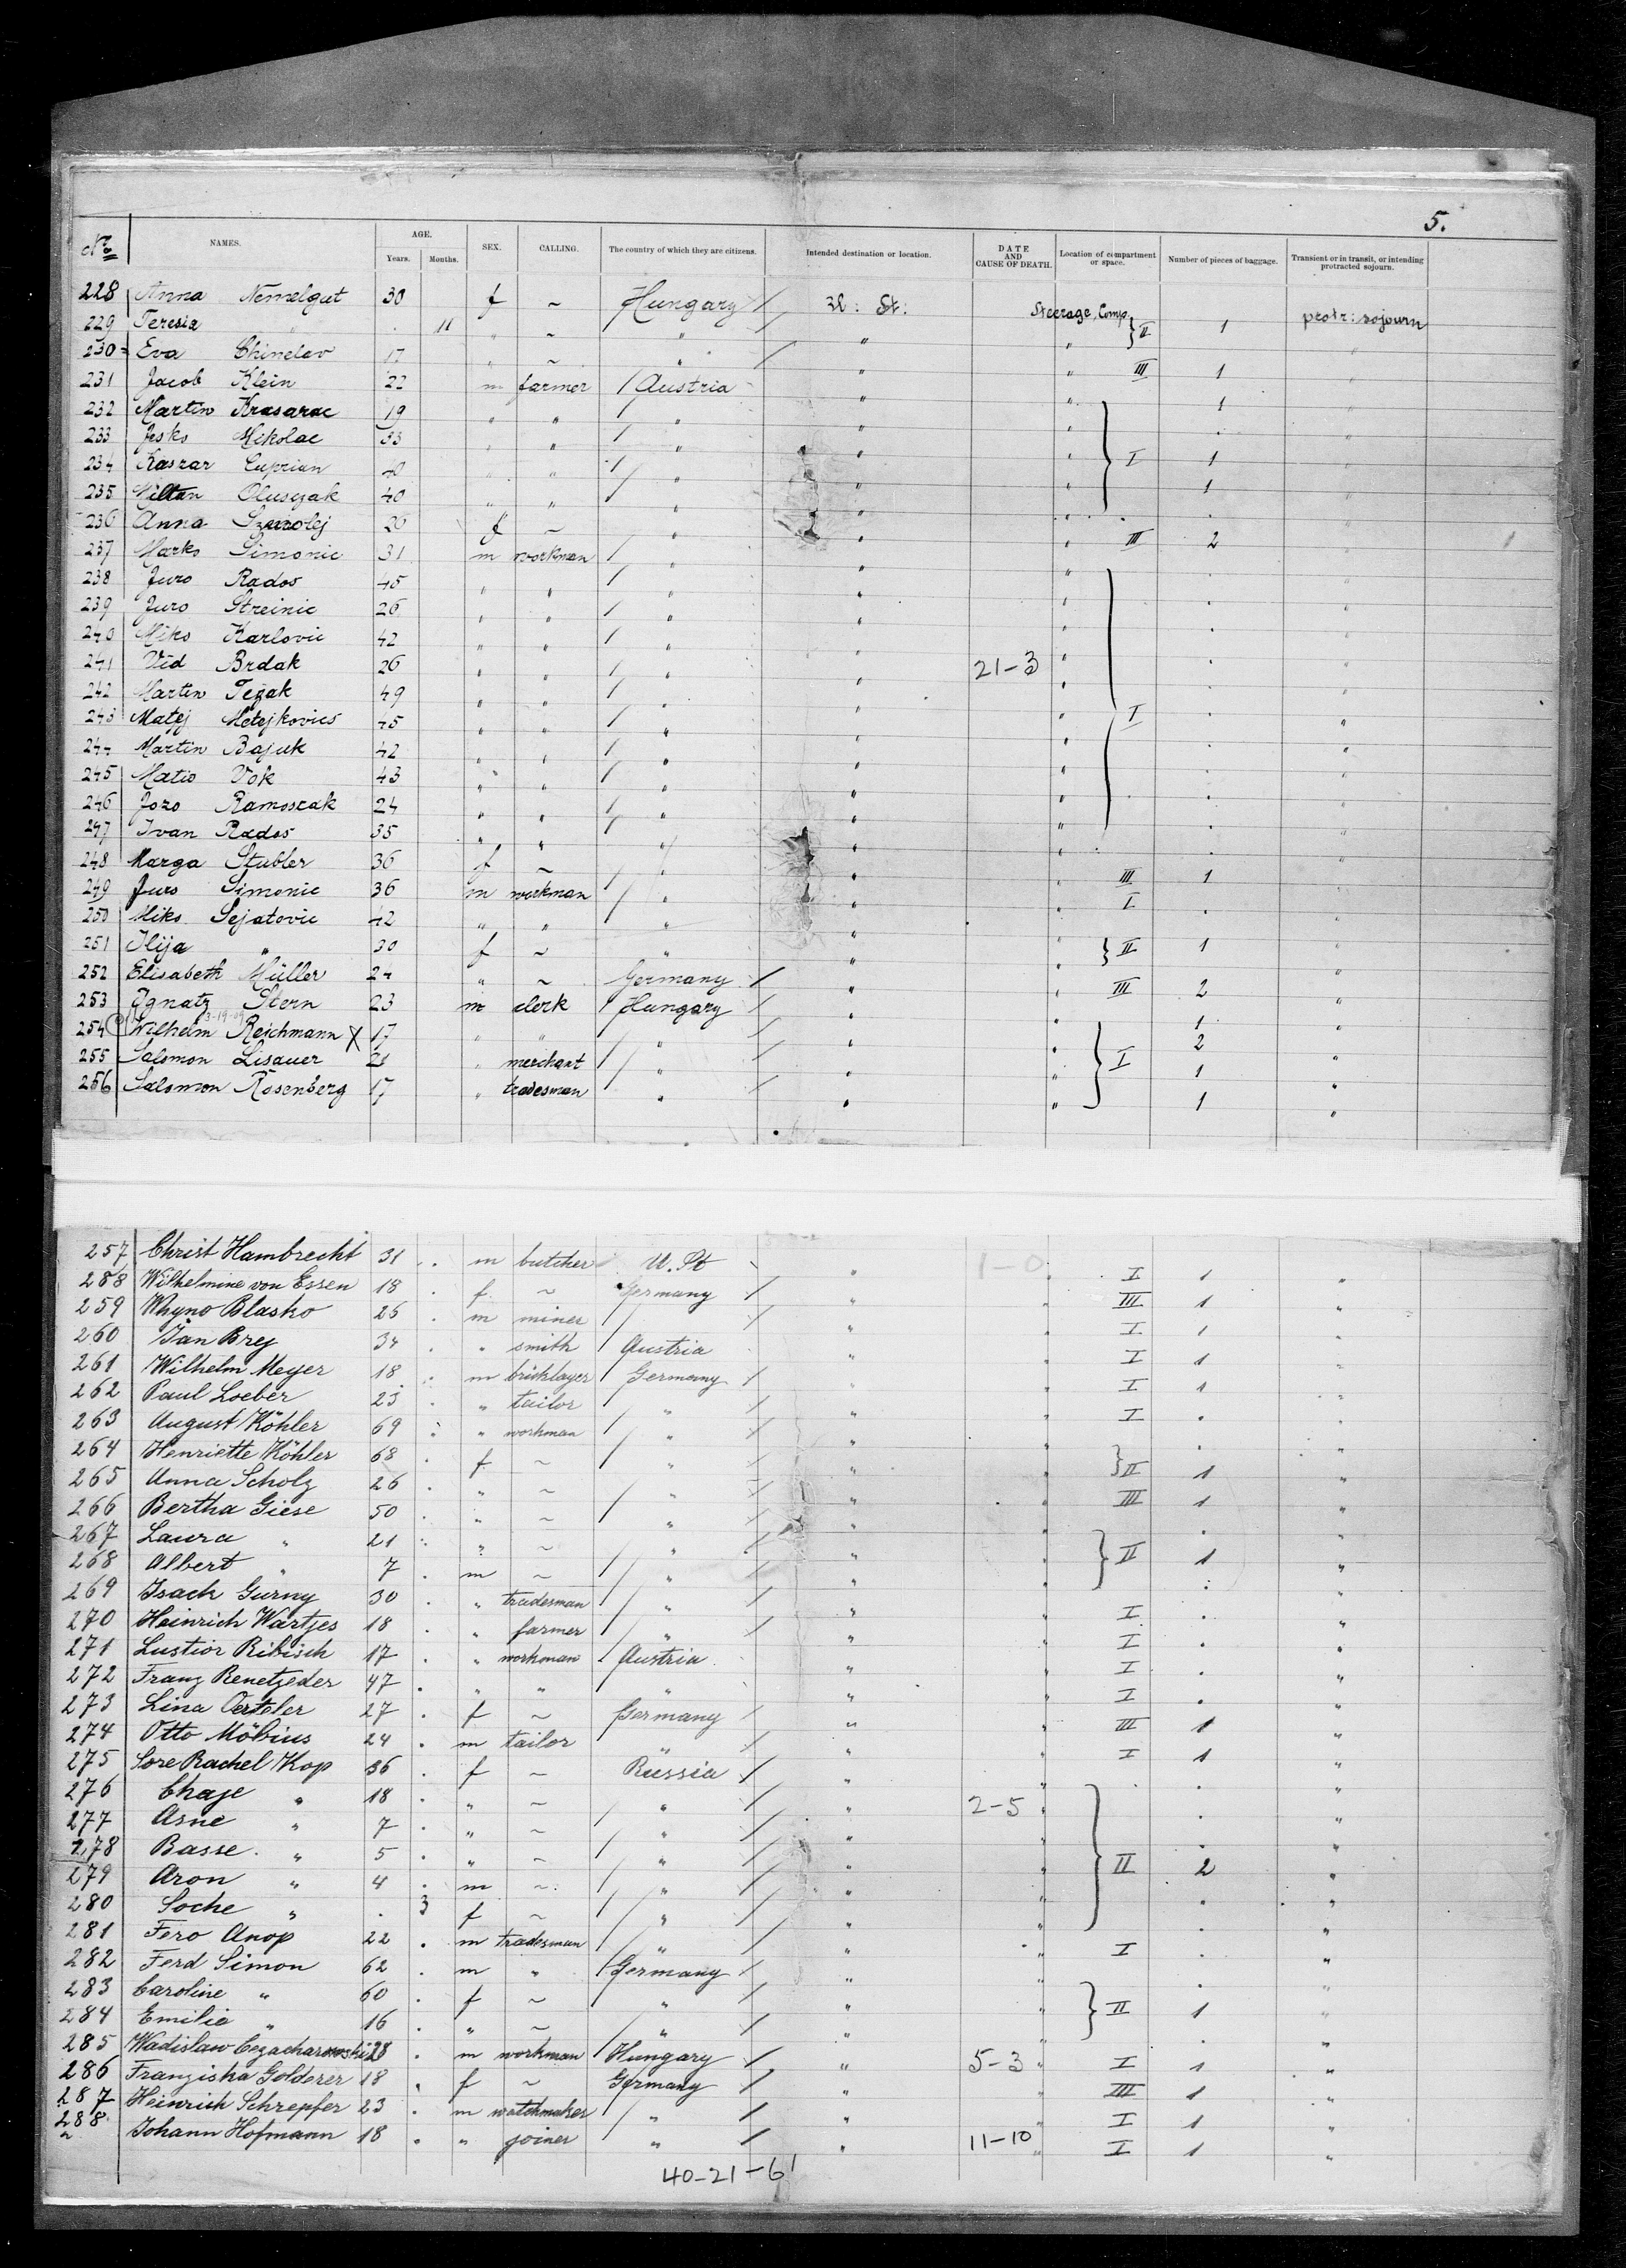 5.
No NAMES. AGE. Years. Months. SEX. CALLING. The country of which they are citizens. Intended destination or location. DATE AND CAUSE OF DEATH. Location of compartment or space. Number of pieces of baggage. Transient or in transit, or intending protracted sojourn.
228 Anna Nemelgut 30 f ~ Hungary / U: St: Steerage, Comp. 1 protr: sojourn
229 Teresia " . 11 " ~ " / " " } II "
230 Eva 17 " ~ " / " " III 1 "
231 Jacob Klein 22 m farmer / Austria " " 1 "
232 Martin Krasarac 19 " " / " " " . "
233 Josko Mikolac 33 " " / " " " } I 1 "
234 Kaszar Cuprian 40 " " / " " " 1 "
235 Miltan Olusczak 40 " " / " " " . "
236 Anna 26 f ~ " " " III 2 "
237 Marko Simonic 31 m workman / " " " . "
238 Juro Rados 45 " " / " " " . "
239 Juro Streinic 26 " " / " " " . "
240 Miko Karlovic 42 " " / " " " . "
241 Vid Brdak 26 " " / " " 21-3 " . "
242 Martin Težak 49 " " / " " " . "
243 Matej Metejkovics 45 " " / " " " } I . "
244 Martin Bajuk 42 " " / " " " . "
245 Matio Vok 43 " " / " " " . "
246 Jozo Ramoszak 24 " " / " " " . "
247 Ivan Rados 35 " " / " " " . "
248 Marga Stubler 36 f ~ / " " " III 1 "
249 Juro Simonic 36 m workman / " " " I . "
250 Miko Sejatovic 42 " " / " " " "
251 Ilija " 30 f ~ " " " } II 1 "
252 Elisabeth Müller 24 " ~ Germany / " " III 2 "
253 Ignatz Stern 23 m clerk / Hungary / " " 1 "
254 Wilhelm Reichmann X 17 " " / " / " " 2 "
255 Salomon Lisauer 21 " merchant / " / " " } I 1 "
256 Salomon Rosenberg 17 " tradesman / " / " " 1 "
257 Christ Hambrecht 31 . m butcher U. St " 1-0 I 1 "
258 Wilhelmine von Essen 18 . f ~ Germany / " III 1 "
259 Whyno Blasko 26 . m miner / / " I 1 "
260 Jan Brej 34 . " smith / Austria " I 1 "
261 Wilhelm Meyer 18 . m bricklayer / Germany / " I 1 "
262 Paul Loeber 23 . " tailor / " / " I . "
263 August Köhler 69 . " workman / " / " " . "
264 Henriette Köhler 68 . f ~ / " / " " } II 1 "
265 Anna Scholz 26 . " ~ / " / " " III 1 "
266 Bertha Giese 50 . " ~ / " / " " . "
267 Laura " 21 . " ~ / " / " " } II 1 "
268 Albert " 7 . m ~ / " / " " . "
269 Isack Gurny 30 . " tradesman / " / " " I . "
270 Heinrich Wartjes 18 . " farmer / " / " " I . "
271 Lustior Ribisch 17 . " workman / Austria " " I . "
272 Franz Renetzeder 47 . " " " " " I . "
273 Lina Oerteler 27 . f ~ Germany / " " III 1 "
274 Otto Möbius 24 . m tailor " / " " I 1 "
275 Sore Rachel Kop 36 . f ~ Russia / " " . "
276 Chaje " 18 . " ~ / " / " 2-5 " . "
277 Asne " 7 . " ~ / " / " " . "
278 Basse " 5 . " ~ / " / " " } II 2 "
279 Aron " 4 . m ~ / " / " " . "
280 Soche " . 3 f ~ / " / " " . "
281 Fero Anop 22 . m tradesman / " / " " I . "
282 Ferd Simon 62 . m " / Germany / " " . "
283 Caroline " 60 . f ~ / " / " " } II 1 "
284 Emilie " 16 . " ~ / " / " " . "
285 Wadislaw Czacharowski 28 . m workman / Hungary / " 5-3 " I 1 "
286 Franziska Golderer 18 . f ~ Germany / " " III 1 "
287 Heinrich Schrepfer 23 . m watchmaker / " / " " I 1 "
288 Johann Hofmann 18 . " joiner " / " 11-10 " I 1 "
40-21-61